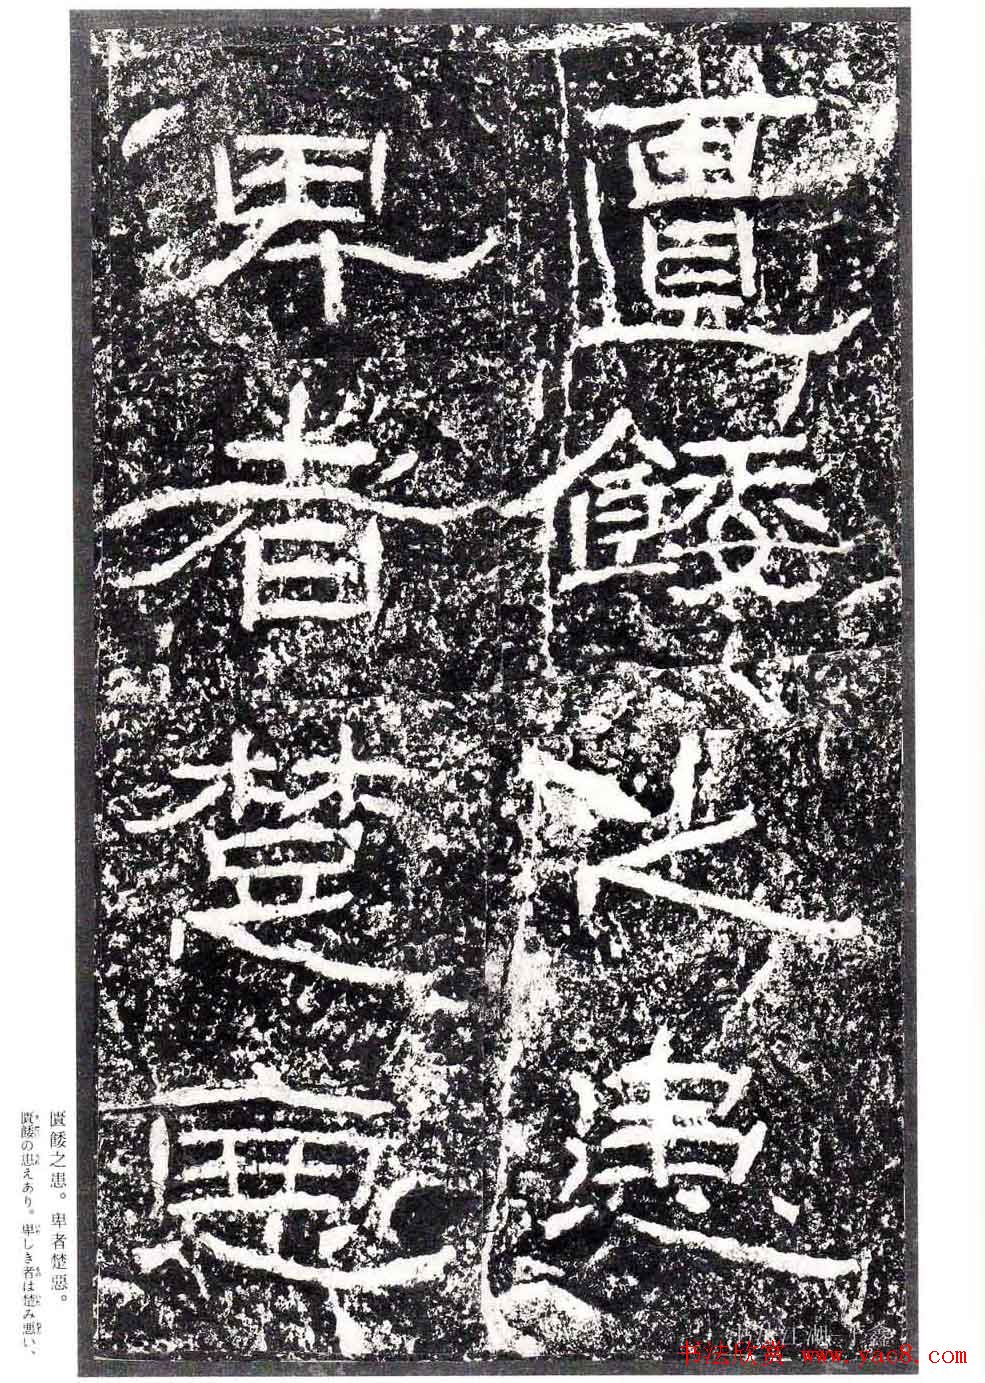 匱餧之患
卑者楚惡
匱餧之患。卑者楚惡。
匱餧の患えあり。卑しき者は楚み悪い、
书法欣赏 www.yac8.com